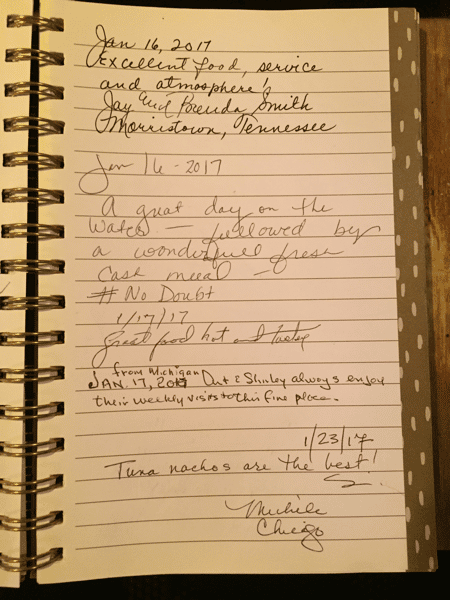 Jan 16, 2017
Excellent food, service
and atmosphere!
Jay and Brenda Smith
Morristown, Tennessee
Jan 16-2017
A great day on the
Water — followed by
a wonderfull fresh
meal -
# No Doubt
1/17/17
Great food hot and tasty
from Michigan
JAN. 17, 2017 & Shirley always enjoy
their weekly visits to this fine place.
1/23/17
Tuna nachos are the best!
Michele
Chicago